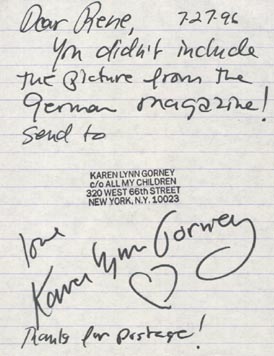 Dear Rene, 7-27-96
You didn't include
the picture from the
German magazine!
Send to
KAREN LYNN GORNEY
c/o ALL MY CHILDREN
320 WEST 66th STREET
NEW YORK, N.Y. 10023
love
Karen Lynn Gorney
Thanks for postage!